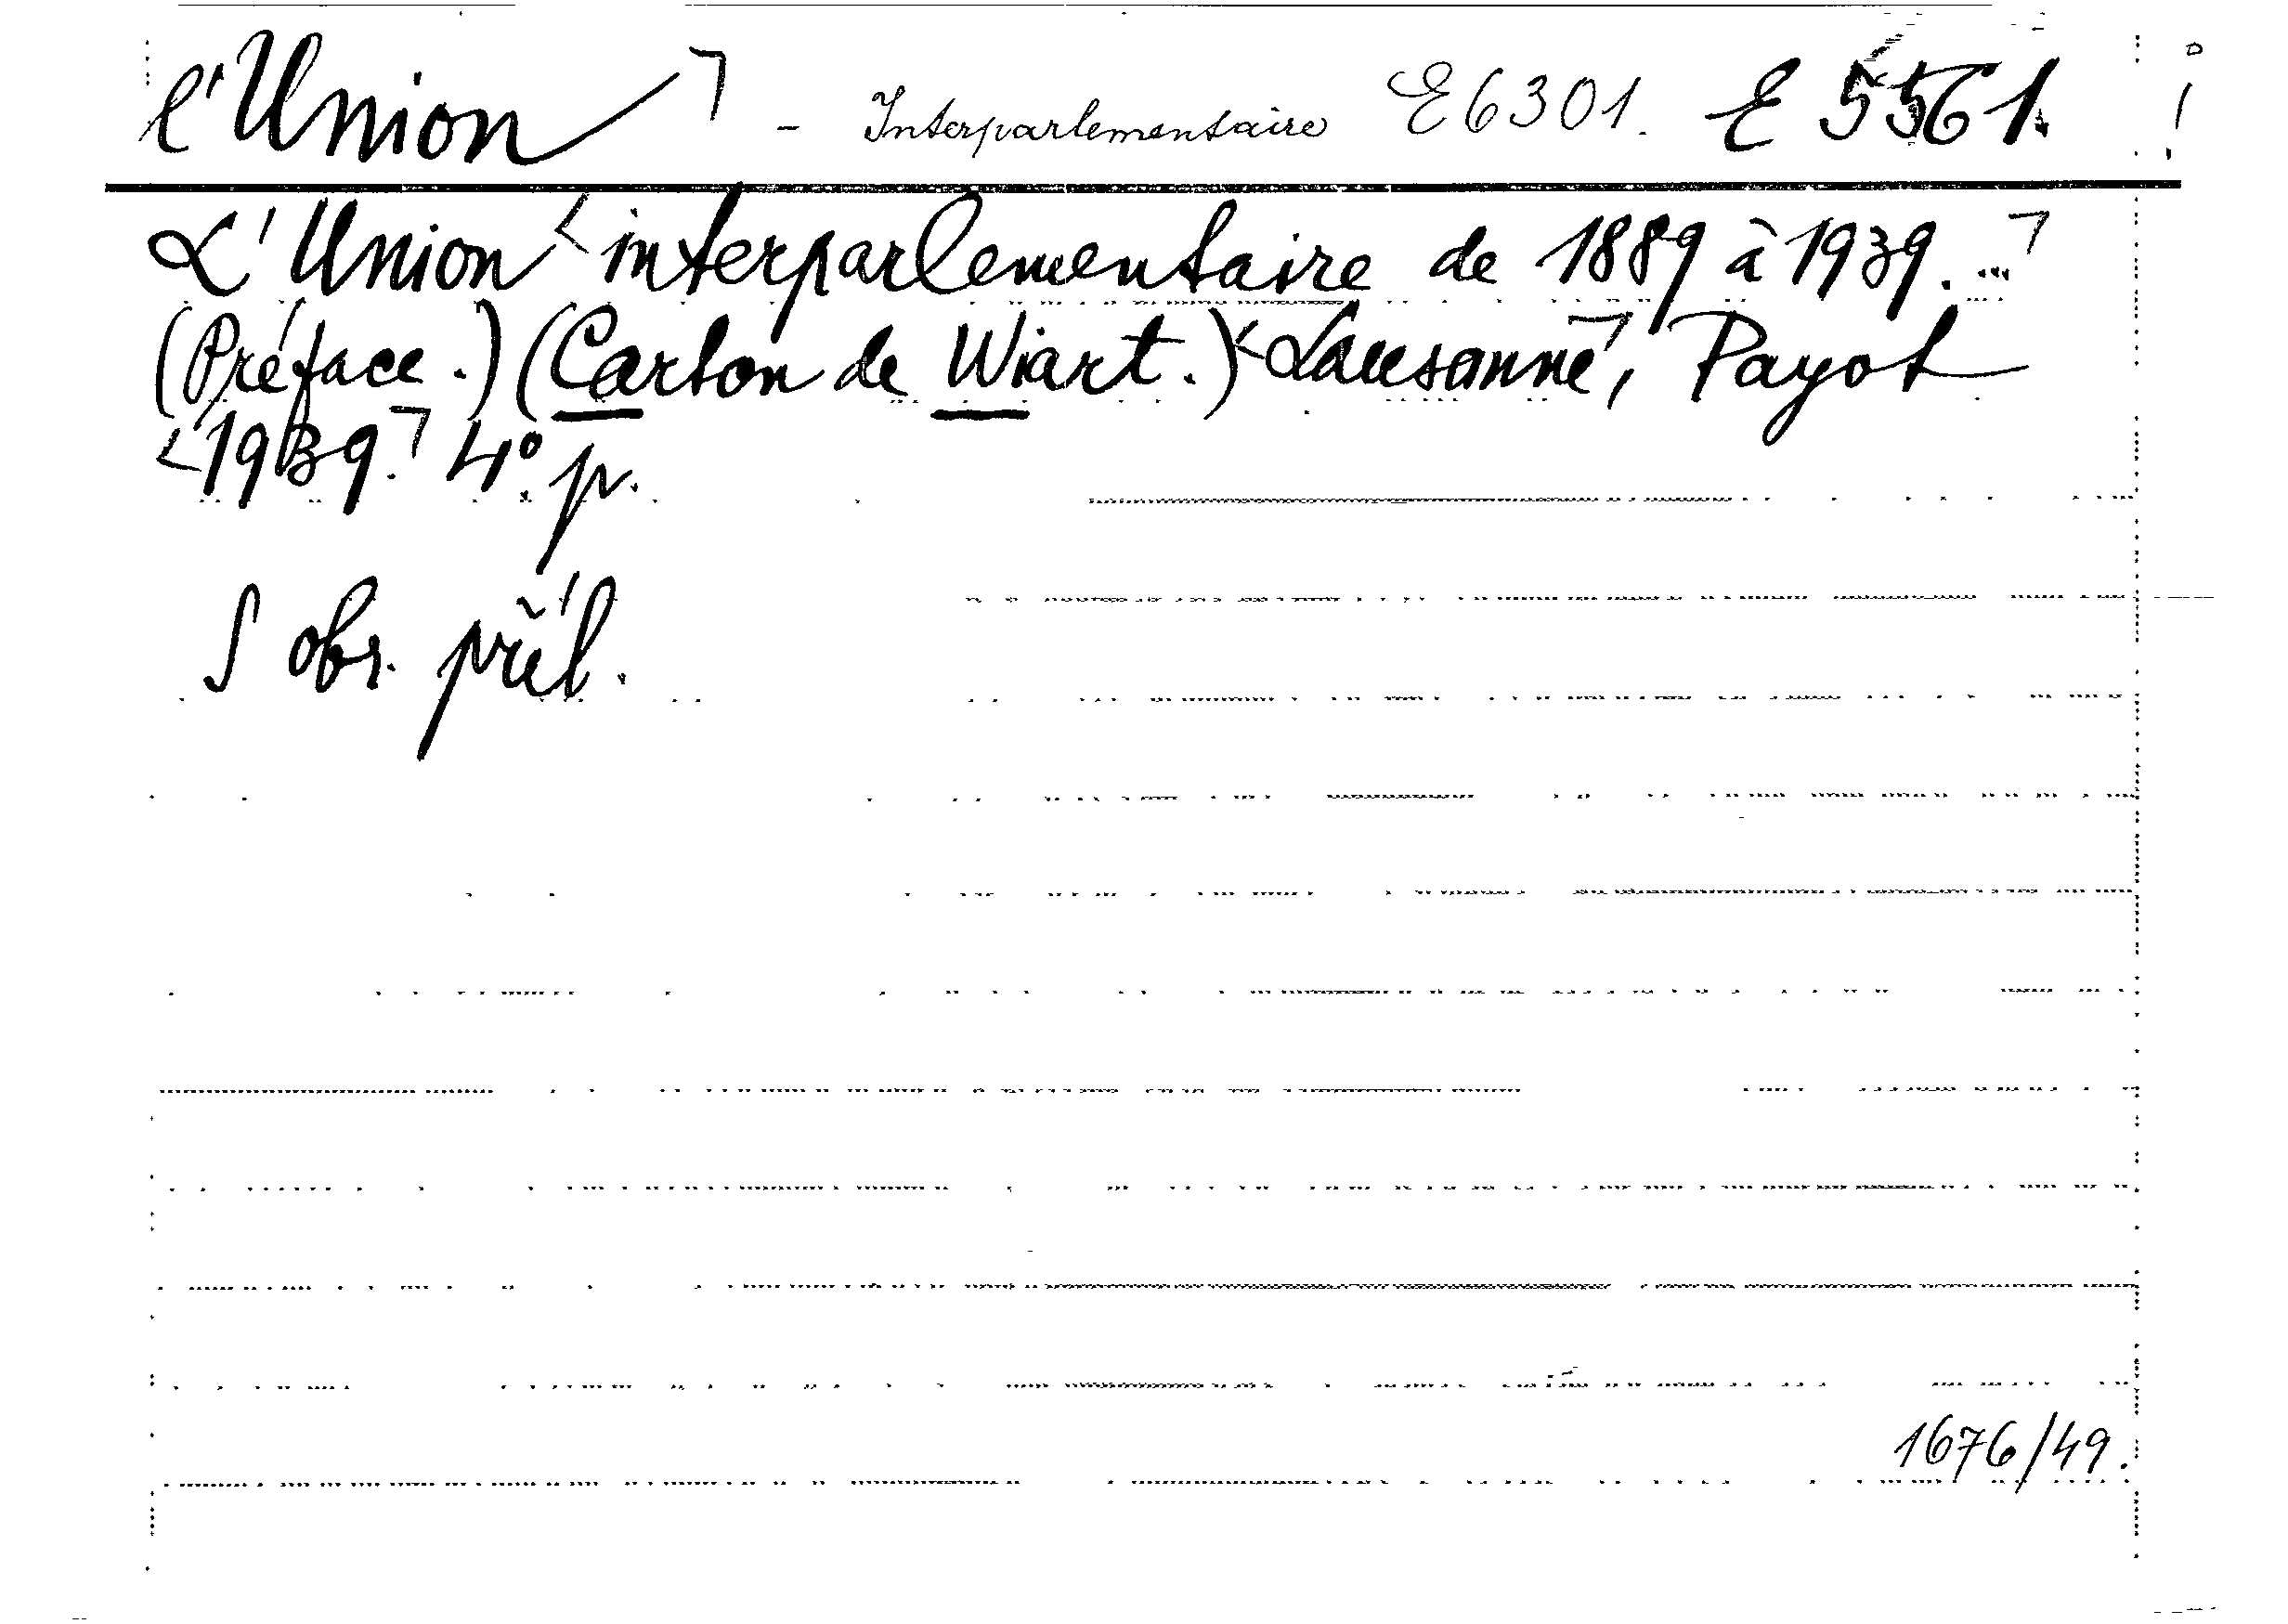 l'Union ⌐ - Interparlementaire E6301. E 5561.
L'Union interparlementaire de 1889 à 1939. ...
(Préface.) (Carton de Wiart.) Lausanne, Payot
1939. 4° p.
S obr. příl.
1676/49.